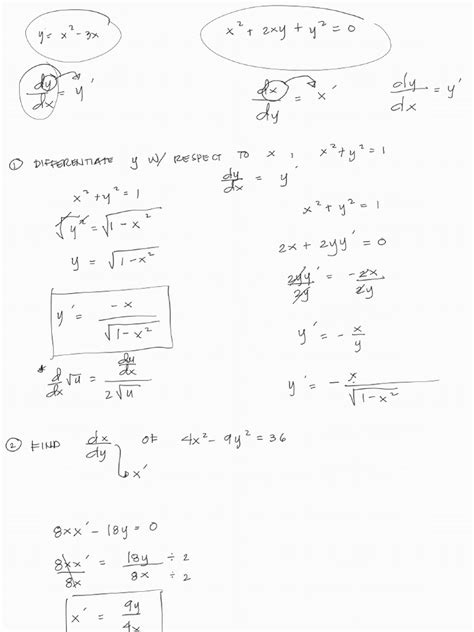 y = x² - 3x
x² + 2xy + y² = 0
dy/dx = y'
dx/dy = x'
dy/dx = y'
① DIFFERENTIATE y W/ RESPECT TO x , x² + y² = 1
dy/dx = y'
x² + y² = 1
√y² = √1 - x²
y = √1 - x²
y' = -x/√1 - x²
* d/dx √u = du/dx / 2√u
x² + y² = 1
2x + 2yy' = 0
2yy'/2y = -2x/2y
y' = - x/y
y' = - x/√1 - x²
② FIND dx/dy OF 4x² - 9y² = 36
x'
8xx' - 18y = 0
8xx'/8x = 18y/8x ÷ 2 ÷ 2
x' = 9y/4x